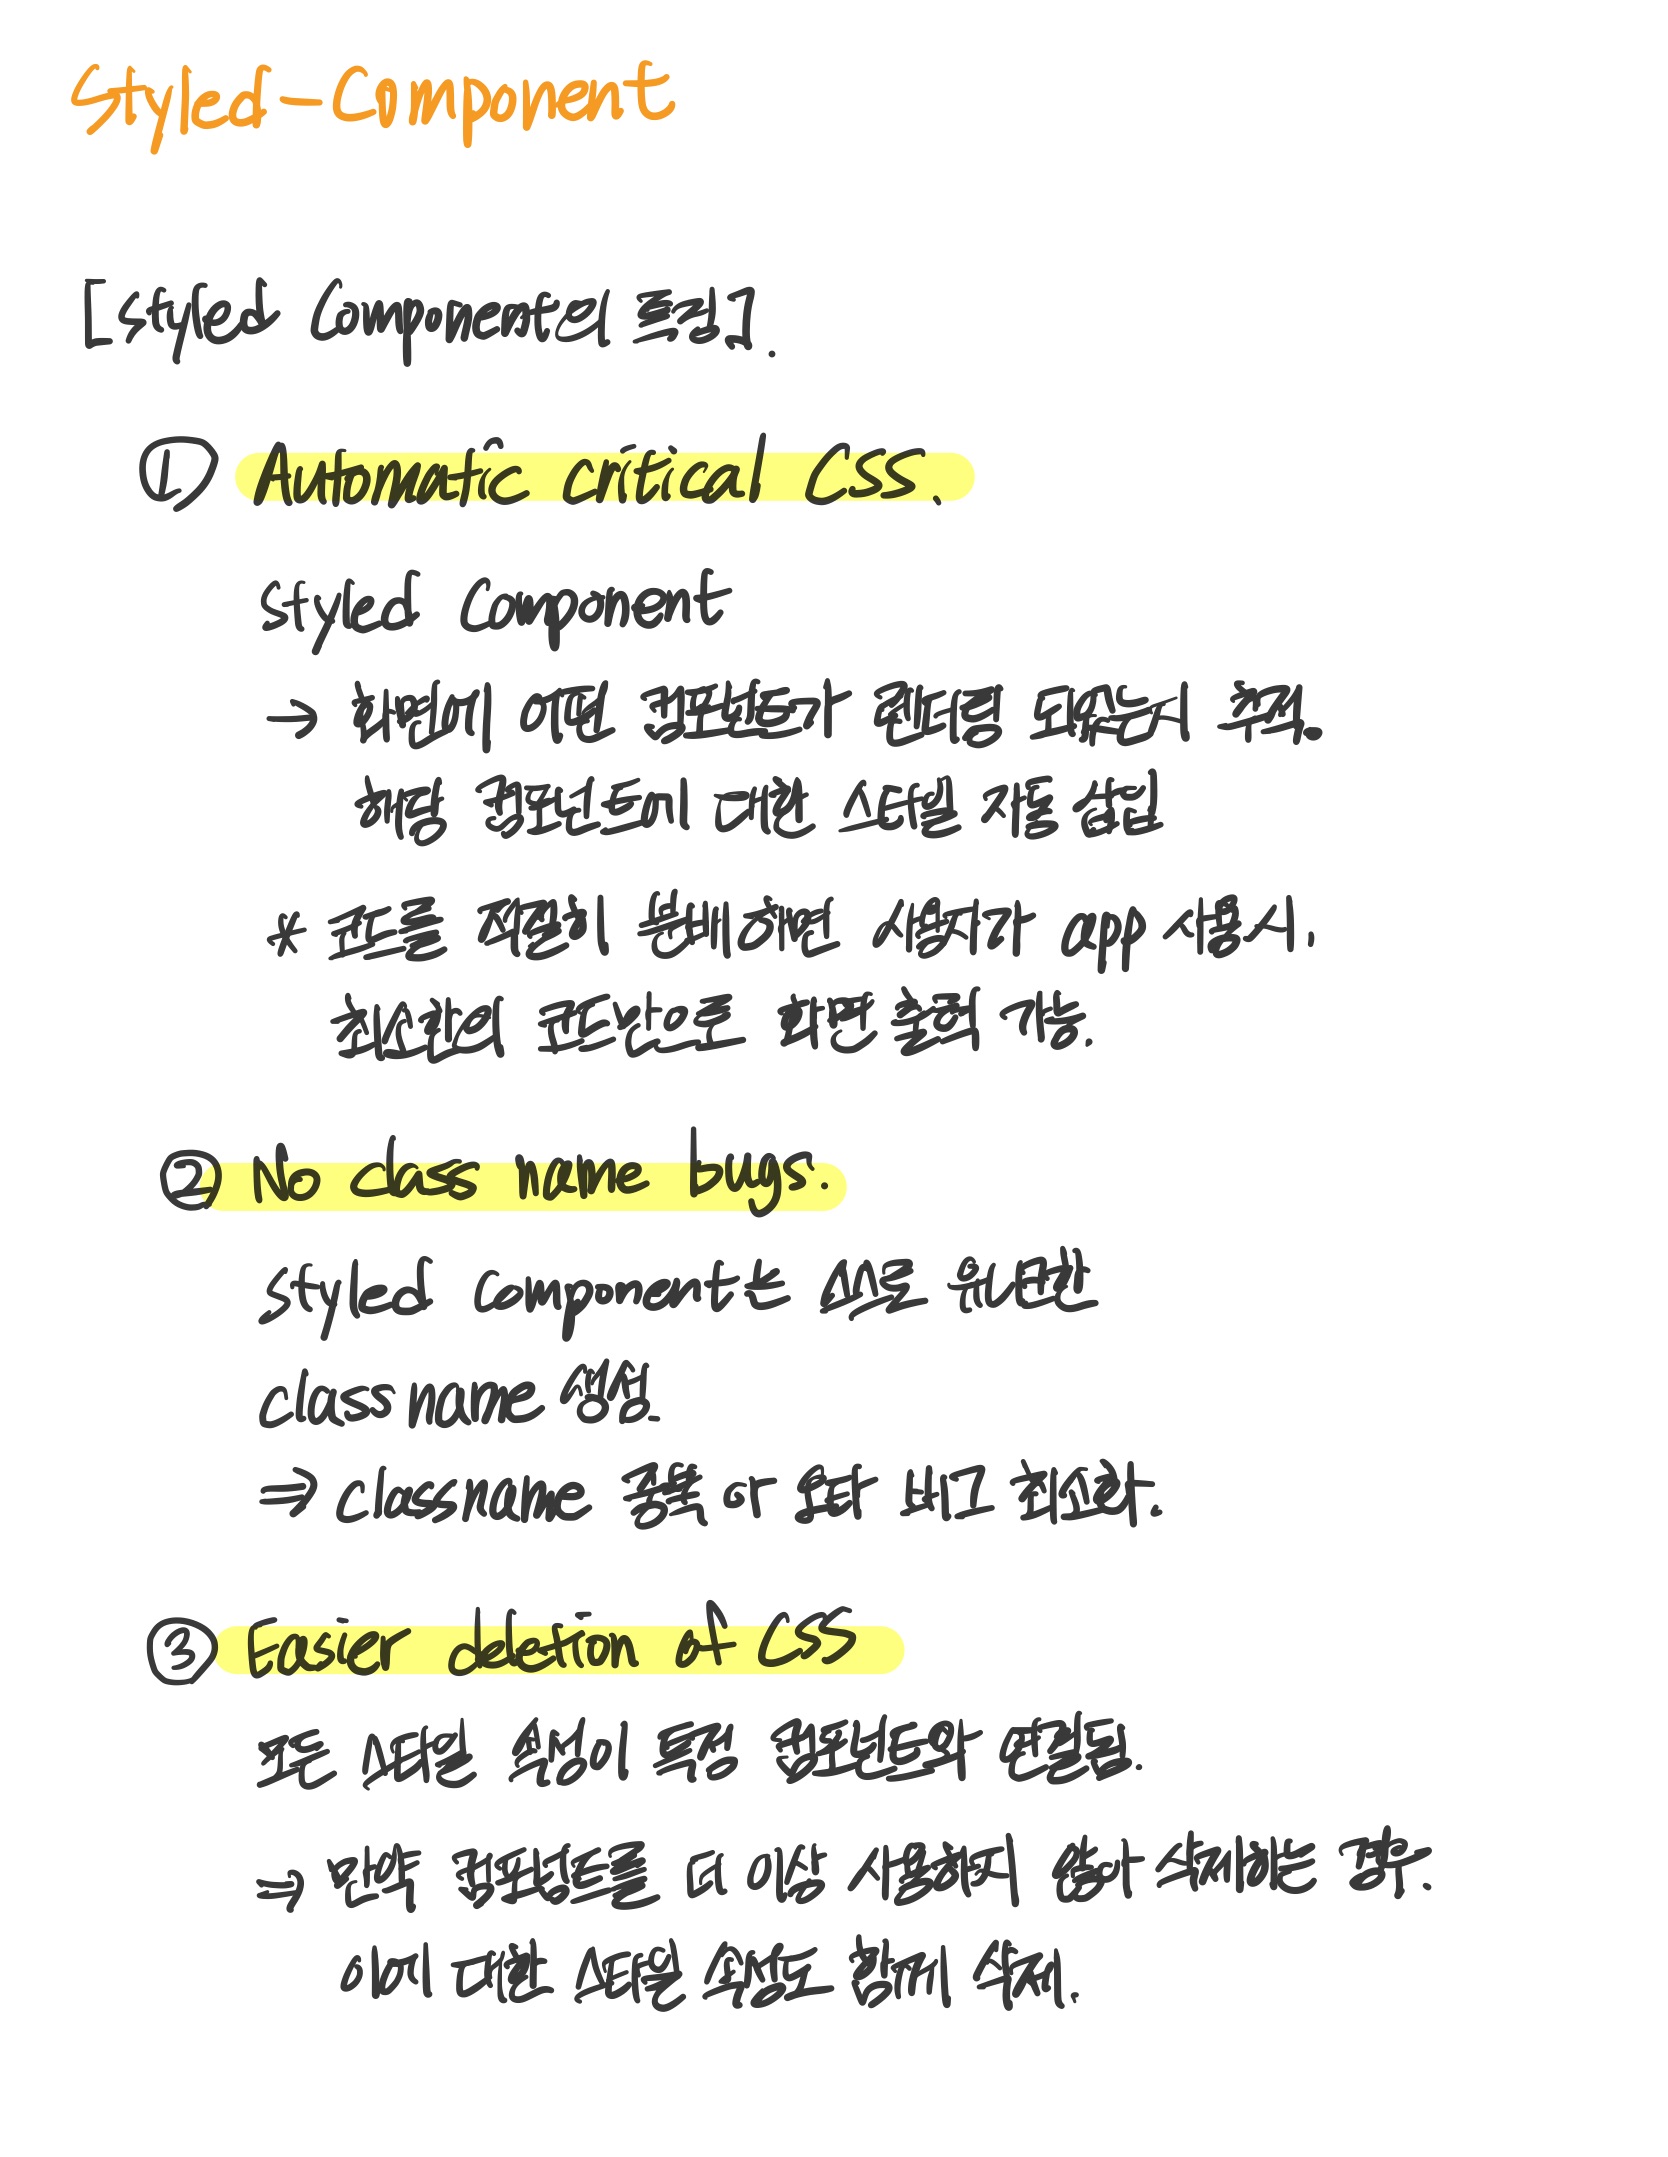 Styled-Component
[Styled Component의 특징].
① Automatic critical CSS.
Styled Component
→ 화면에 어떤 컴포넌트가 렌더링 되있는지 추적.
해당 컴포넌트에 대한 스타일 자동 삽입
* 코드를 적절히 분배하면 사용자가 app 사용시,
최소한의 코드만으로 화면 출력 가능.
② No class name bugs.
Styled Component는 스스로 유니크한
class name 생성.
⇒ classname 중복 이나 오타 버그 최소화.
③ Easier deletion of CSS
모든 스타일 속성이 특정 컴포넌트와 연결됨.
⇒ 만약 컴포넌트를 더 이상 사용하지 않아 삭제하는 경우.
이에 대한 스타일 속성도 함께 삭제.